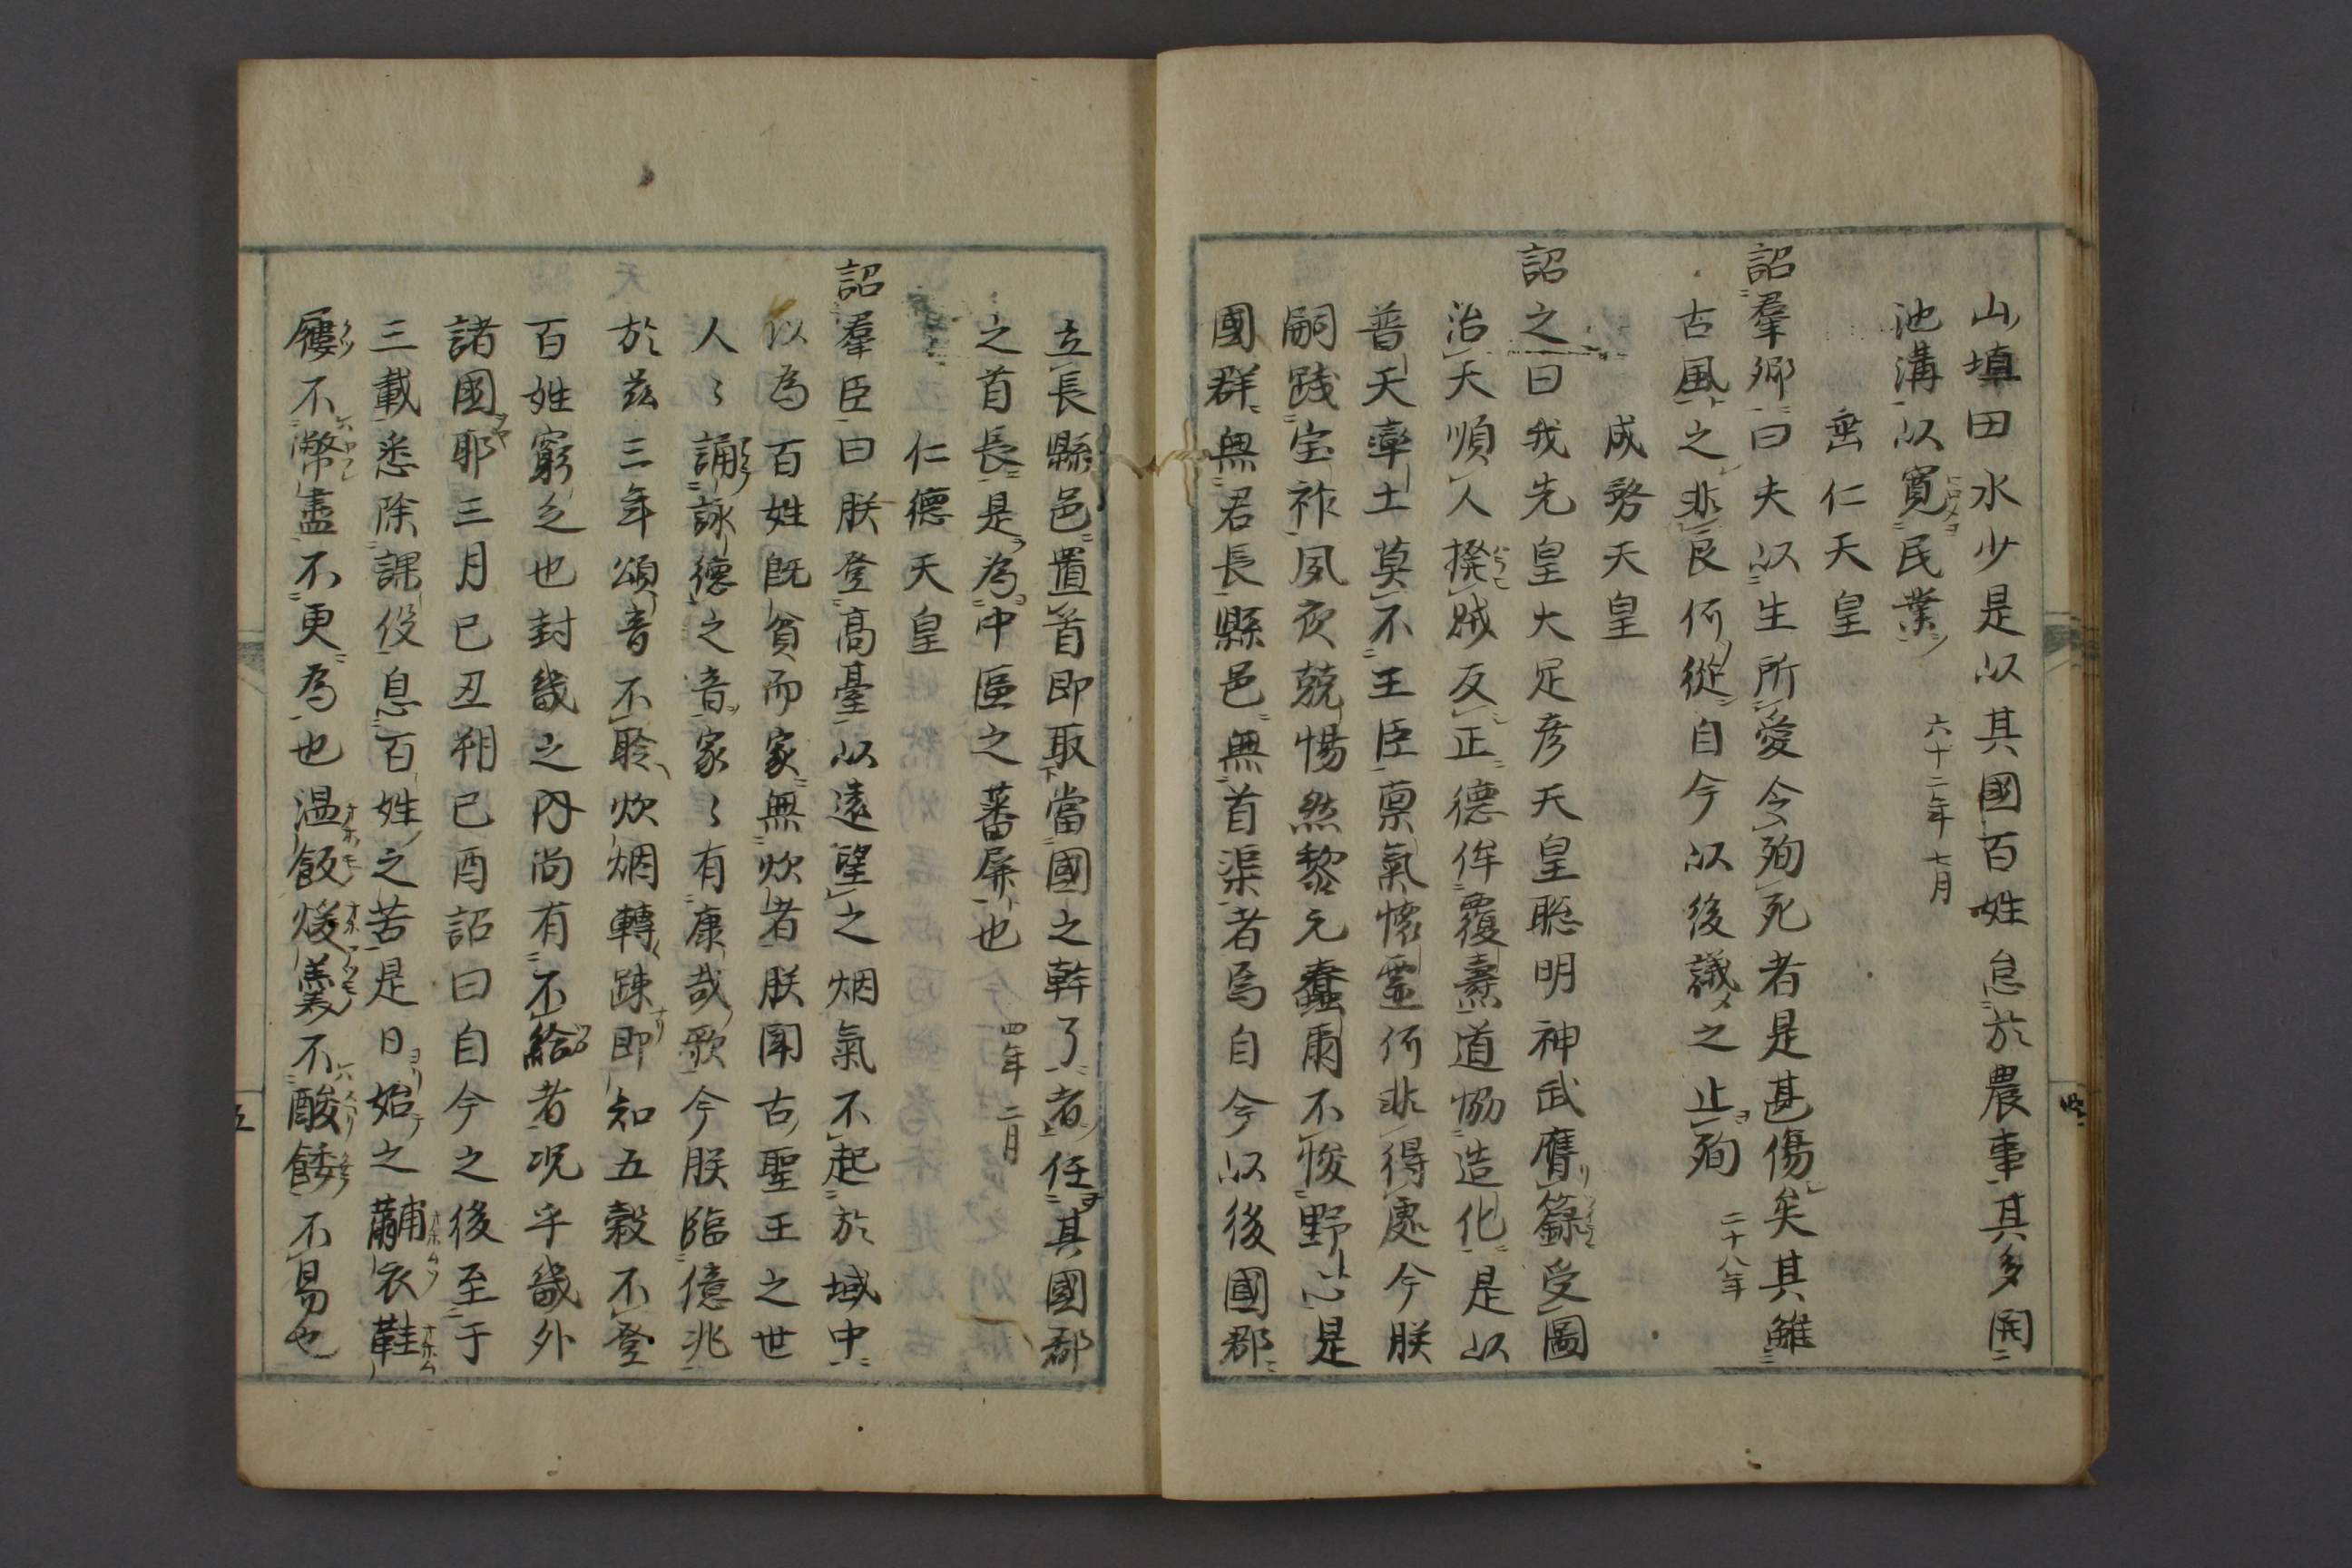 山埴田水少是以其國百姓怠於農事其多開
池溝以寛民業 六十二年七月
垂仁天皇
詔羣卿曰夫以生所愛令殉死者是甚傷矣其雖
古風之非良何從自今以後議之止殉 二十八年
成務天皇
詔之曰我先皇大足彦天皇聡明神武膺籙受圖
治天順人撥賊反正德侔覆燾道協造化是以
普天率土莫不王臣禀氣懷靈何非得處今朕
嗣踐宝祚夙夜兢惕然黎元蠢爾不悛野心是
國群無君長縣邑無首渠者焉自今以後國郡
立長縣邑置首即取當國之幹了者任其國郡
之首長是為中區之蕃屏也 四年二月
仁德天皇
詔羣臣曰朕登高臺以遠望之烟氣不起於域中
以為百姓既貧而家無炊者朕聞古聖王之世
人〻誦詠德之音家〻有康哉歌今朕臨億兆
於茲三年頌音不聆炊烟轉踈即知五穀不登
百姓窮乏也封畿之内尚有不給者况乎畿外
諸國耶三月已丑朔己酉詔曰自今之後至于
三載悉除課役息百姓之苦是日始之黼衣鞋
屨不幣盡不更為也温飯煖羹不酸餧不易也